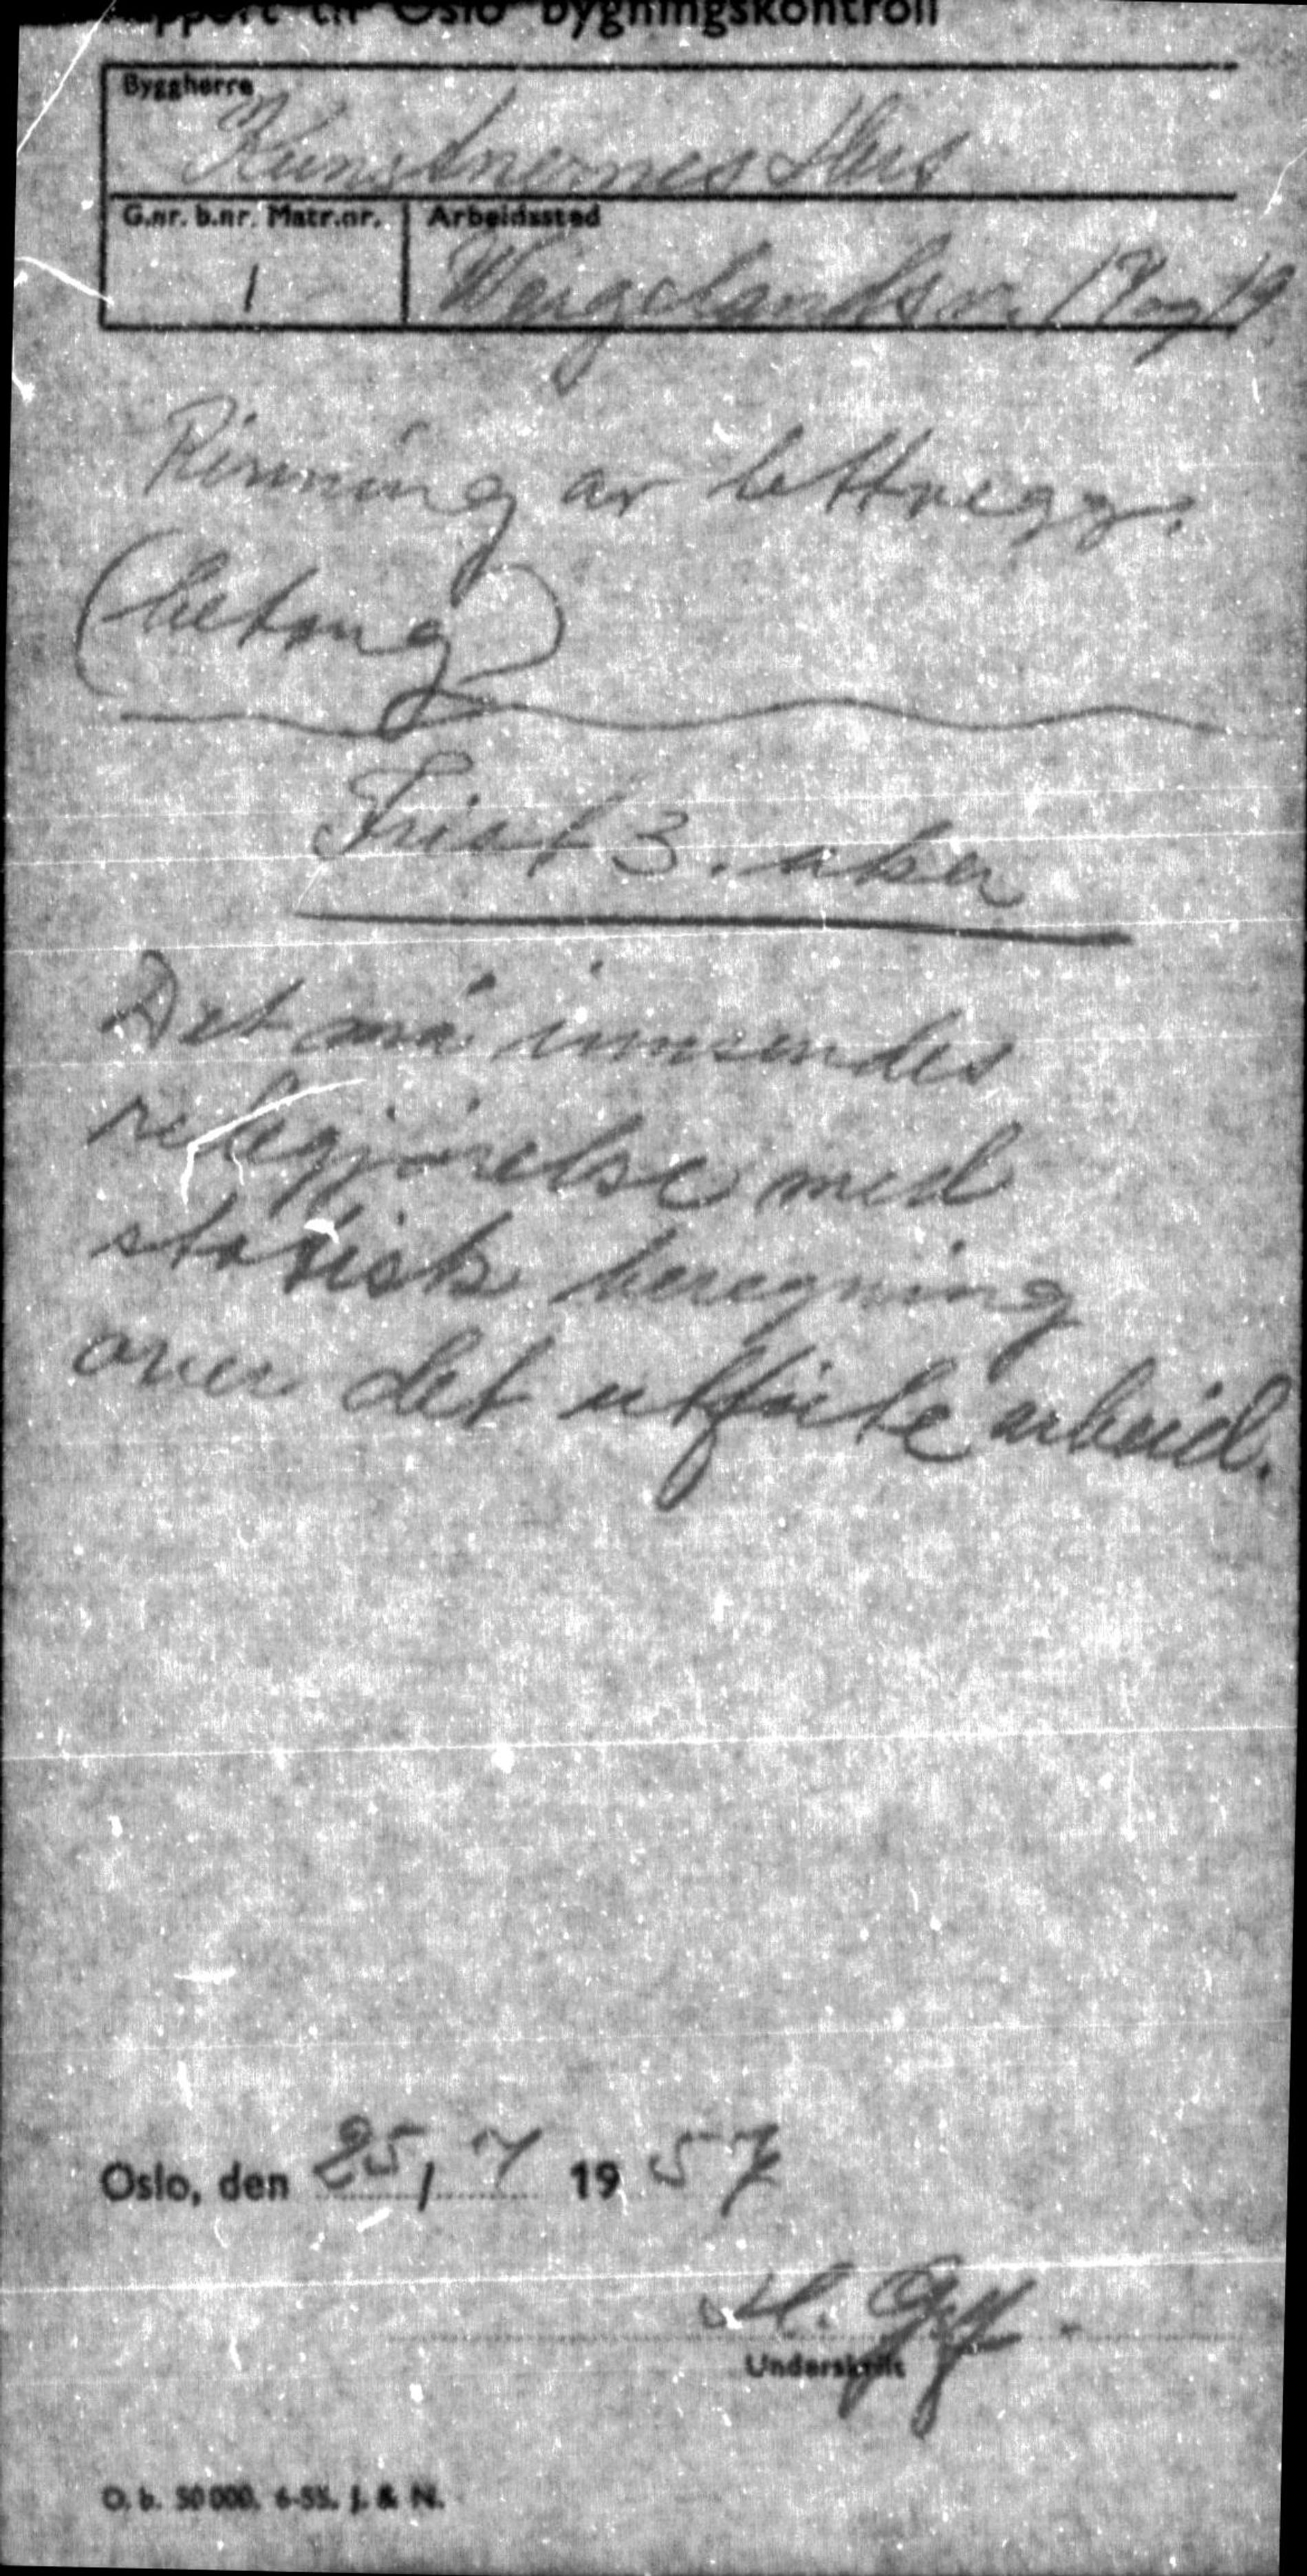 Rapport til Oslo bygningskontroll
Byggherre
Kunstnernes Hus
G.nr. b.nr. Matr.nr. Arbeidssted
1 Wergelandsv. 17 og 19.
Rivning av lettvegg.
(betong)
Frist 3. uker
Det må innsendes
redegjørelse med
statisk beregning
over det utførte arbeid.
Oslo, den 25/7 1957
H.
Underskrift
O. b. 50 000. 6-55. J. & N.